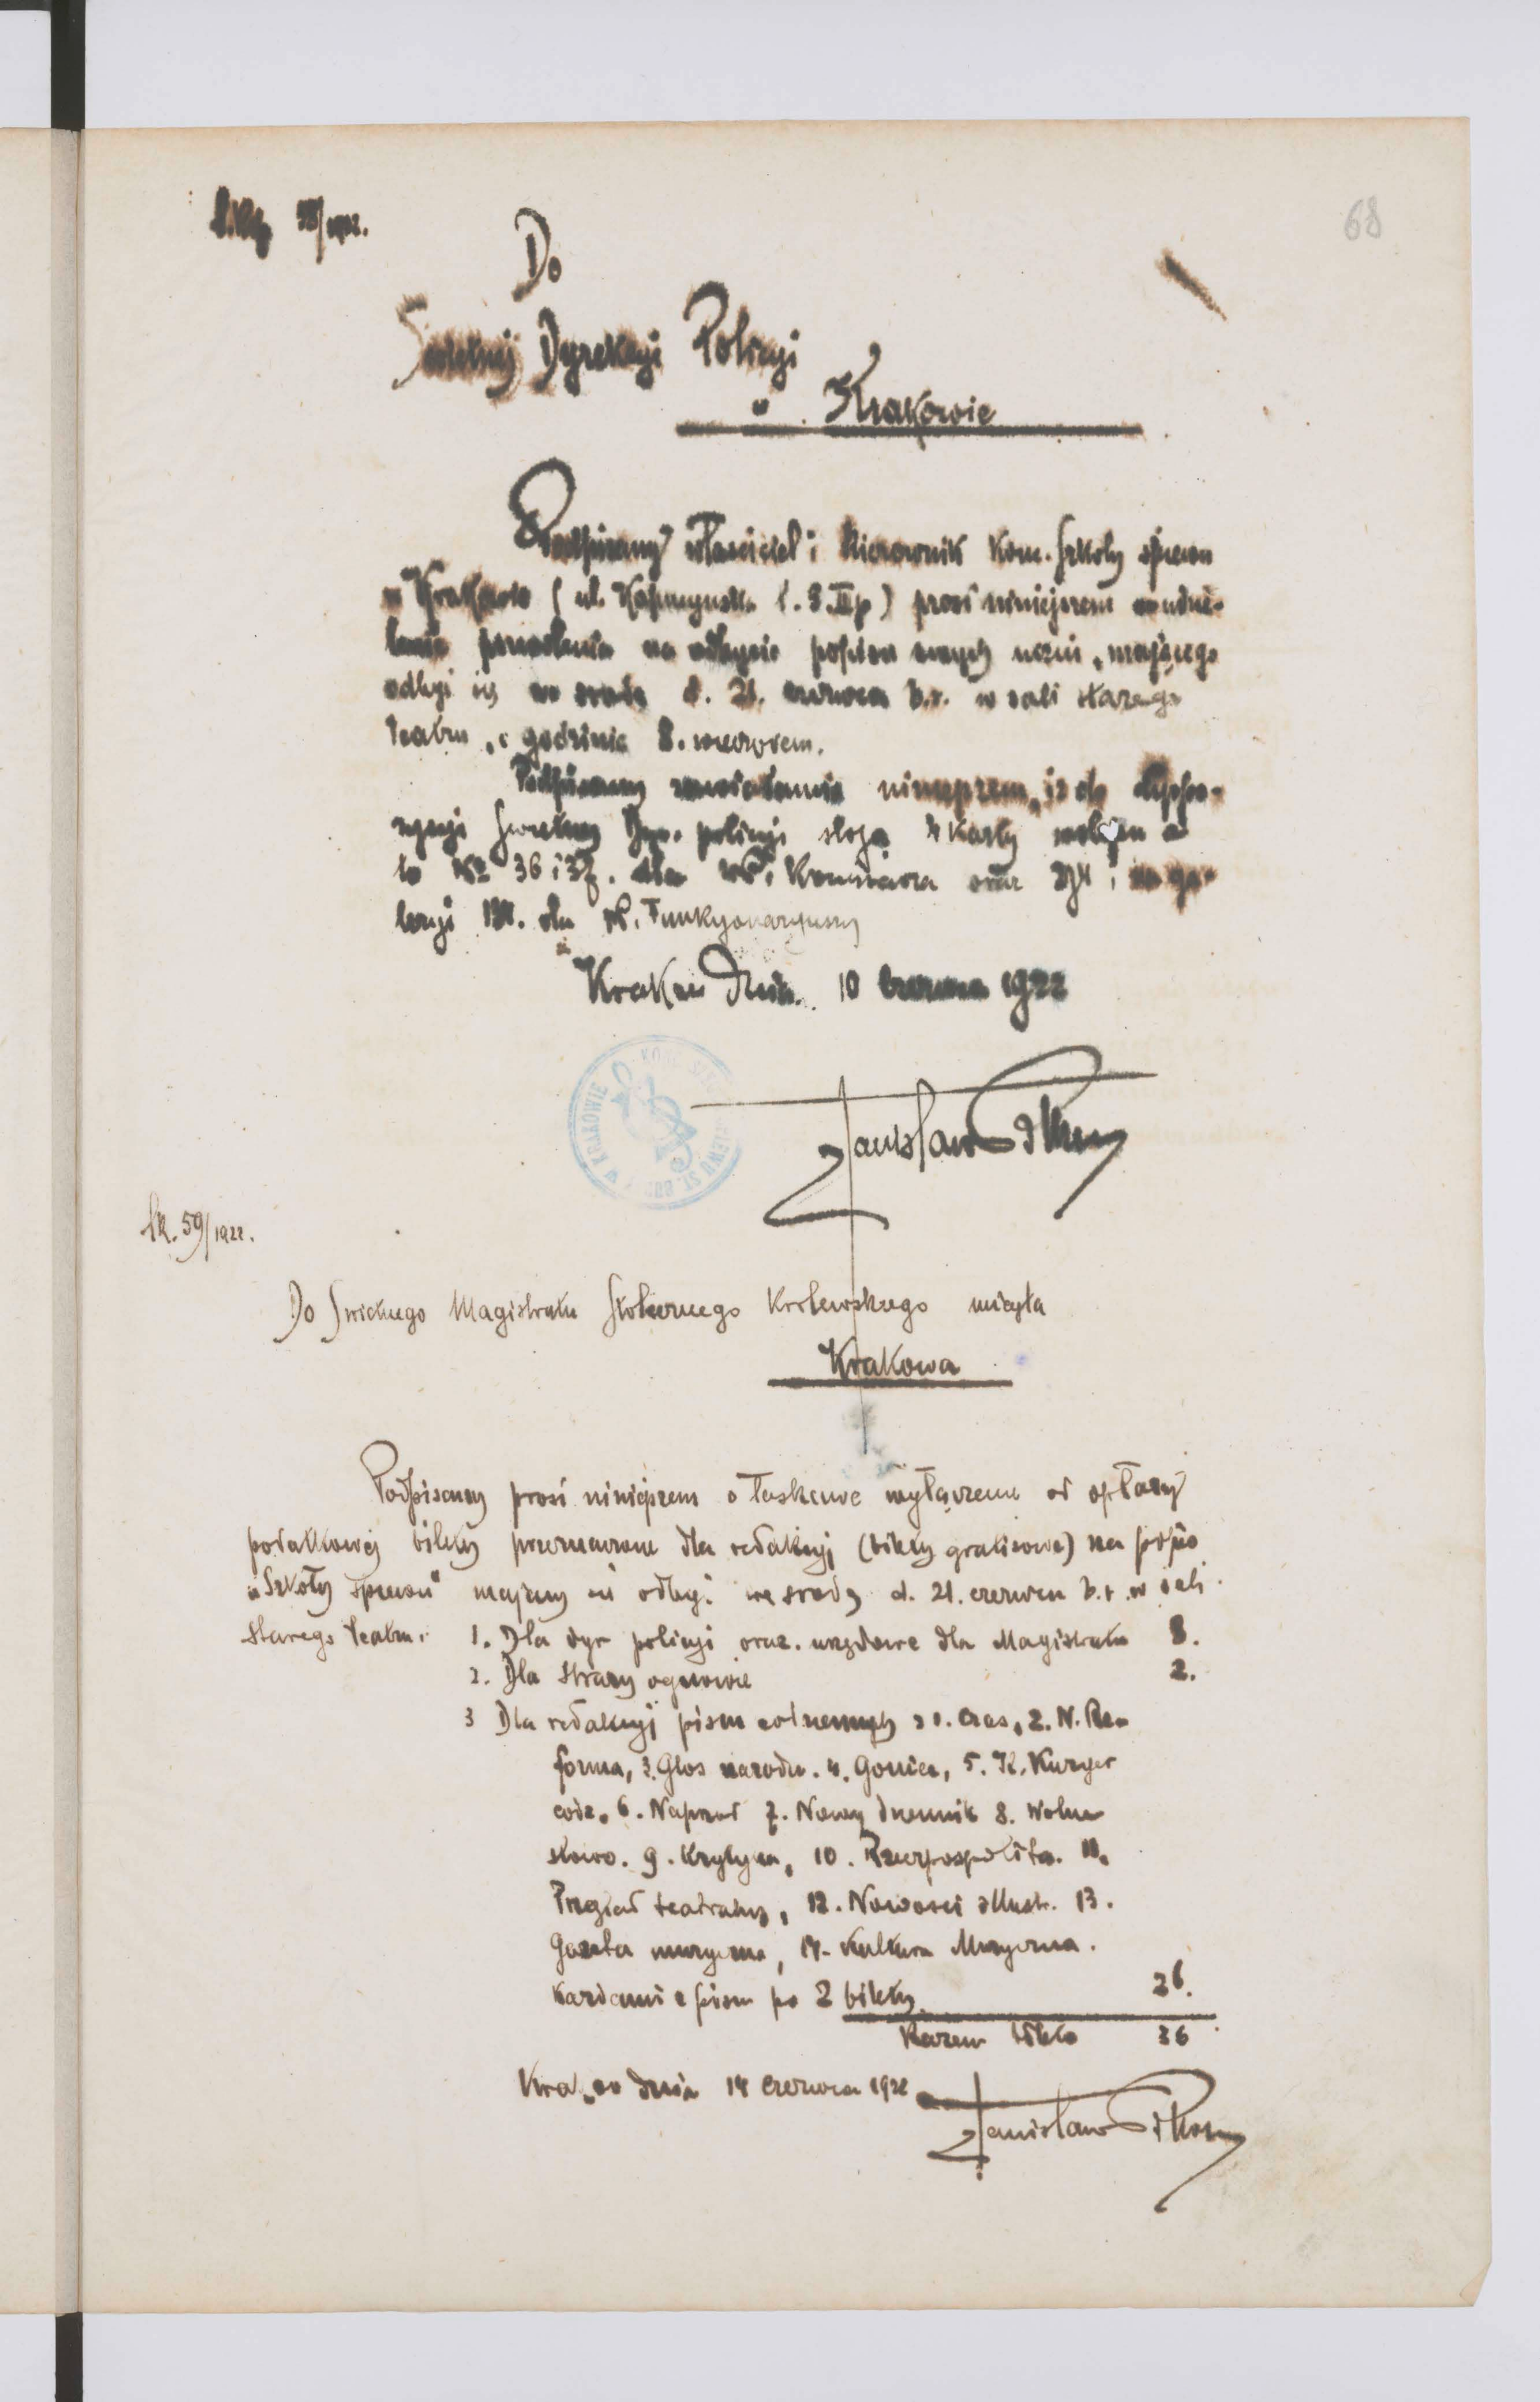 68
Do
Świetnej Dyrekcyi Policyi
w Krakowie
Podpisany właściciel i kierownik konc. szkoły śpiewu
w Krakowie (ul. Kapucyńska l. 3. II p) prosi niniejszem o udzie-
lenie pozwolenia na odbycie popisu swych uczni, mającego
odbyć się we środę d. 21. czerwca b.r. w sali starego
teatru, o godzinie 8. wieczorem.
Podpisany zawiadamia niniejszem, iż do dyspo-
zycyi Świetnej Dyr. policyi 4 karty a
to No 36 i 37. dla WP. Komisarza oraz i na ga-
leryi dla P. Funkcyonaryuszy
Kraków dnia. 10 czerwca 1922
W KRAKOWIE
Stanisław
lk. 59/1922.
Do Świetnego Magistratu Stołecznego Królewskiego miasta
Krakowa
Podpisany prosi niniejszem o łaskawe wyłączenie od opłaty
podatkowej bilety przeznaczone dla redakcyj (bilety gratisowe) na popis
„Szkoły śpiewu" mający się odbyć we środę d. 21. czerwca b.r. w sali
Starego Teatru.
1. Dla dyr policyi oraz. urzędowe dla Magistratu 8.
2. Dla Straży ogniowej 2.
3 Dla redakcyj pism 1. Czas, 2. N. Re-
forma, 3. Głos narodu. 4. Goniec, 5. Il. Kuryer
codz. 6. Naprzód 7. Nowy dziennik 8. Wolne
słowo. 9. Krytyka, 10. Rzeczpospolita. 11.
Przegląd teatralny, 12. Nowości illustr. 13.
Gazeta muzyczna, 14. Kultura Muzyczna.
Każdemu z pism po 2 bilety 26.
Razem 36
Kraków dnia 14 czerwca 1922
Stanisław